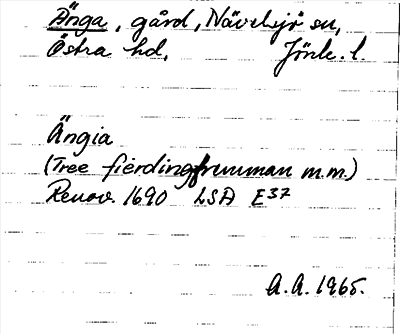 Änga, gård, Nävelsjö sn,
Östra hd, Jönk. l.
Ängia
(Tree fierding frumman m.m.)
Renov. 1690 LSA E37
A.A. 1965.